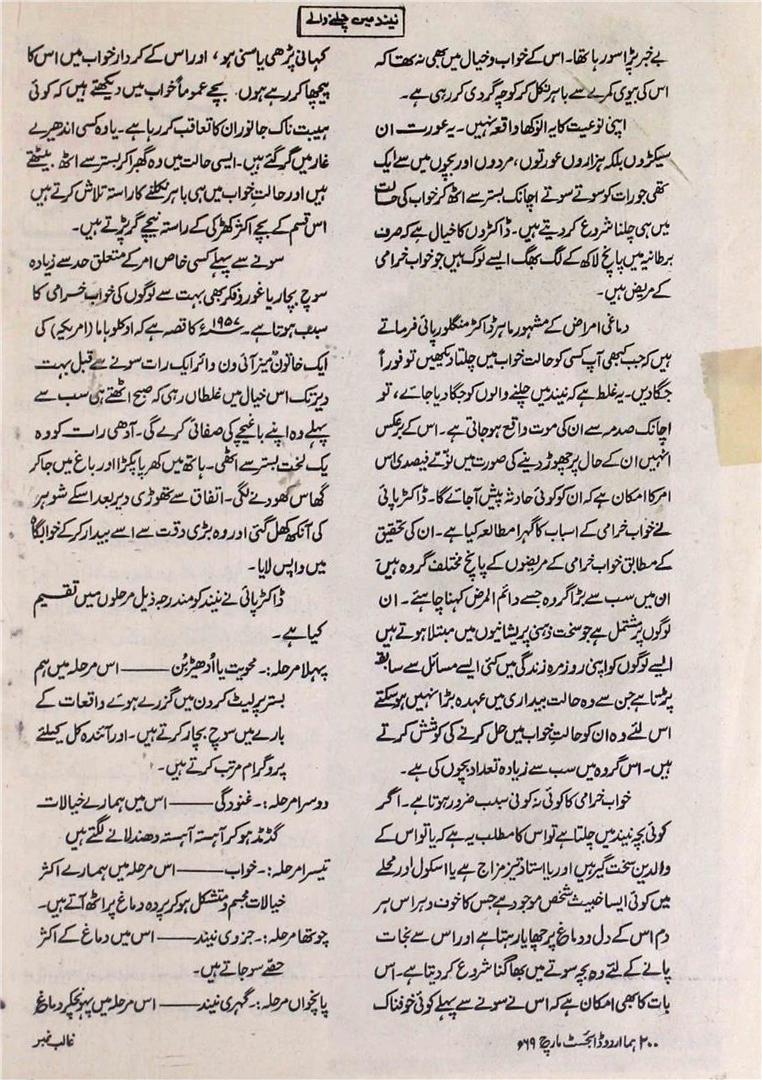 نیند میں چلنے والے
بے خبر پڑا سو رہا تھا۔ اس کے خواب و خیال میں بھی نہ تھا کہ
اس کی بیوی کمرے سے باہر نکل کر کوچہ گردی کر رہی ہے۔
اپنی نوعیت کا یہ انوکھا واقعہ نہیں۔ یہ عورت ان
سیکڑوں بلکہ ہزاروں عورتوں، مردوں اور بچوں میں سے ایک
تھی جو رات کو سوتے سوتے اچانک بستر سے اٹھ کر خواب کی حالت
میں ہی چلنا شروع کر دیتے ہیں۔ ڈاکٹروں کا خیال ہے کہ صرف
برطانیہ میں پانچ لاکھ کے لگ بھگ ایسے لوگ ہیں جو خواب خرامی
کے مریض ہیں۔
دماغی امراض کے مشہور ماہر ڈاکٹر منگلور پائی فرماتے
ہیں کہ جب کبھی آپ کسی کو حالت خواب میں چلتا دیکھیں تو فوراً
جگا دیں۔ یہ غلط ہے کہ نیند میں چلنے والوں کو جگا دیا جائے، تو
اچانک صدمہ سے ان کی موت واقع ہو جاتی ہے۔ اس کے برعکس
انہیں ان کے حال پر چھوڑ دینے کی صورت میں نوّے فیصدی اس
امر کا امکان ہے کہ ان کو کوئی حادثہ پیش آ جائے گا۔ ڈاکٹر پائی
نے خواب خرامی کے اسباب کا گہرا مطالعہ کیا ہے۔ ان کی تحقیق
کے مطابق خواب خرامی کے مریضوں کے پانچ مختلف گروہ ہیں
ان میں سب سے بڑا گروہ جسے دائم المرض کہنا چاہئے۔ ان
لوگوں پر مشتمل ہے جو سخت ذہنی پریشانیوں میں مبتلا ہوتے ہیں
ایسے لوگوں کو اپنی روزمرہ زندگی میں کئی ایسے مسائل سے سابقہ
پڑتا ہے جن سے وہ حالت بیداری میں عہدہ برا نہیں ہو سکتے
اس لئے وہ ان کو حالتِ خواب میں حل کرنے کی کوشش کرتے
ہیں۔ اس گروہ میں سب سے زیادہ تعداد بچوں کی ہے۔
خواب خرامی کا کوئی نہ کوئی سبب ضرور ہوتا ہے۔ اگر
کوئی بچہ نیند میں چلتا ہے تو اس کا مطلب یہ ہے کہ یا تو اس کے
والدین سخت گیر ہیں اور یا استاد تیز مزاج ہے یا اسکول اور محلے
میں کوئی ایسا خبیث شخص موجود ہے جس کا خوف و ہراس ہر
دم اس کے دل و دماغ پر چھایا رہتا ہے اور اس سے نجات
پانے کے لئے وہ بچہ سوتے میں بھاگنا شروع کر دیتا ہے۔ اس
بات کا بھی امکان ہے کہ اس نے سونے سے پہلے کوئی خوفناک
کہانی پڑھی یا سنی ہو، اور اس کے کردار خواب میں اس کا
پیچھا کر رہے ہوں۔ بچے عموماً خواب میں دیکھتے ہیں کہ کوئی
ہیبت ناک جانور ان کا تعاقب کر رہا ہے۔ یا وہ کسی اندھیرے
غار میں گر گئے ہیں۔ ایسی حالت میں وہ گھبرا کر بستر سے اٹھ بیٹھتے
ہیں اور حالت خواب میں ہی باہر نکلنے کا راستہ تلاش کرتے ہیں
اس قسم کے بچے اکثر کھڑکی کے راستہ نیچے گر پڑتے ہیں۔
سونے سے پہلے کسی خاص امر کے متعلق حد سے زیادہ
سوچ بچار یا غور و فکر بھی بہت سے لوگوں کی خواب خرامی کا
سبب ہوتا ہے۔ ۱۹۵۷ء کا قصہ ہے کہ اوکلوہاما (امریکہ) کی
ایک خاتون مسز آئی ون وائر ایک رات سونے سے قبل بہت
دیر تک اس خیال میں غلطاں رہی کہ صبح اٹھتے ہی سب سے
پہلے وہ اپنے باغیچے کی صفائی کرے گی۔ آدھی رات کو وہ
یک لخت بستر سے اٹھی۔ ہاتھ میں کھرپا پکڑا اور باغ میں جا کر
گھاس کھودنے لگی۔ اتفاق سے تھوڑی دیر بعد اسکے شوہر
کی آنکھ کھل گئی اور وہ بڑی دقت سے اسے بیدار کر کے خوابگاہ
میں واپس لایا۔
ڈاکٹر پائی نے نیند کو مندرجہ ذیل مرحلوں میں تقسیم
کیا ہے۔
پہلا مرحلہ:۔ محویت یا اُدھیڑ بُن ——— اس مرحلہ میں ہم
بستر پر لیٹ کر دن میں گزرے ہوئے واقعات کے
بارے میں سوچ بچار کرتے ہیں۔ اور آئندہ کل کیلئے
پروگرام مرتب کرتے ہیں۔
دوسرا مرحلہ:۔ غنودگی ——— اس میں ہمارے خیالات
گڈمڈ ہو کر آہستہ آہستہ دھندلانے لگتے ہیں
تیسرا مرحلہ:۔ خواب ——— اس مرحلہ میں ہمارے اکثر
خیالات مجسم و متشکل ہو کر پردہ دماغ پر اٹھ آتے ہیں۔
چوتھا مرحلہ:۔ جزوی نیند ——— اس میں دماغ کے اکثر
حصّے سو جاتے ہیں۔
پانچواں مرحلہ:۔ گہری نیند ——— اس مرحلہ میں پہونچکر دماغ
۲۰۰ ہما اردو ڈائجسٹ مارچ ۶۹ء
غالب نمبر